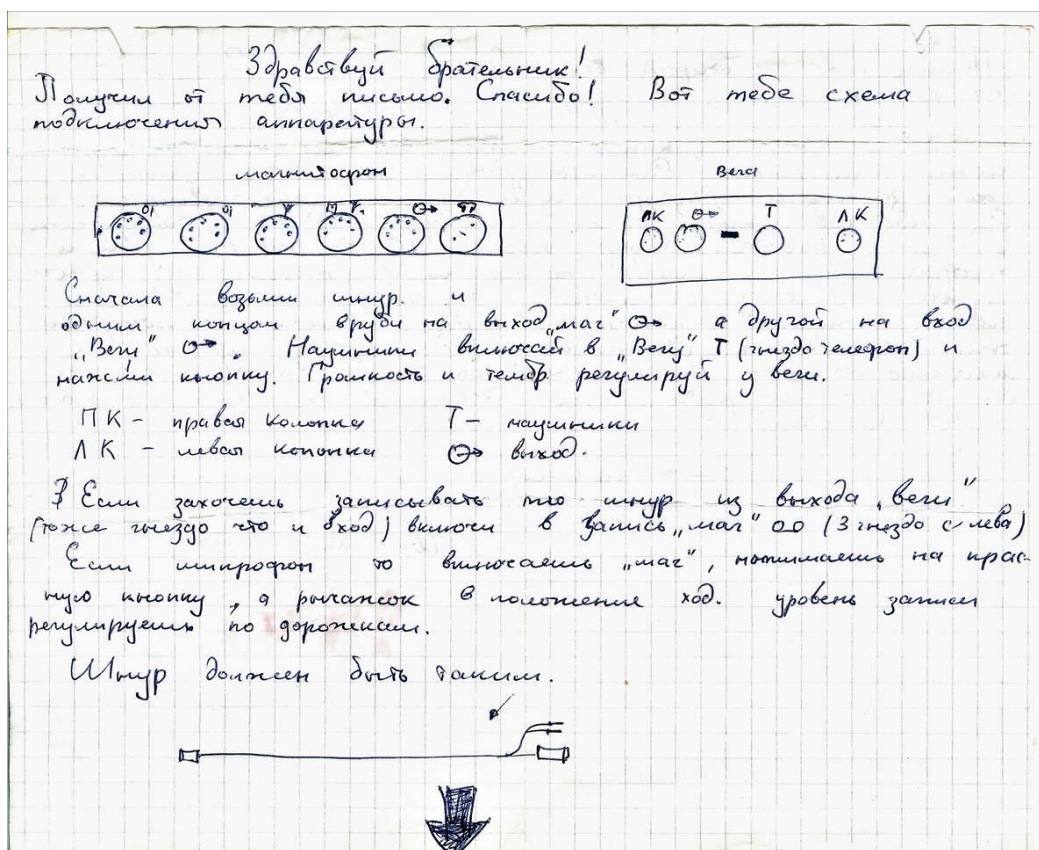 Здравствуй брательник!
Получил от тебя письмо. Спасибо! Вот тебе схема
подключения аппаратуры.
магнитофон Вега
ПК Т ЛК
Сначала возьми шнур. и
одним концом вруби на выход „маг" а другой на вход
„Веги" . Наушники включай в „Вегу" Т (гнездо телефон) и
нажми кнопку. Громкость и тембр регулируй у веги.
ПК - правая колонка Т - наушники
ЛК - левая колонка выход.
Если захочешь записывать то шнур из выхода „веги"
(тоже гнездо что и вход) включи в запись „маг" (3 гнездо с лева)
Если микрофон то включаешь „маг", нажимаешь на крас-
ную кнопку, а рычажок в положение ход. уровень записи
регулируешь по дорожкам.
Шнур должен быть таким.